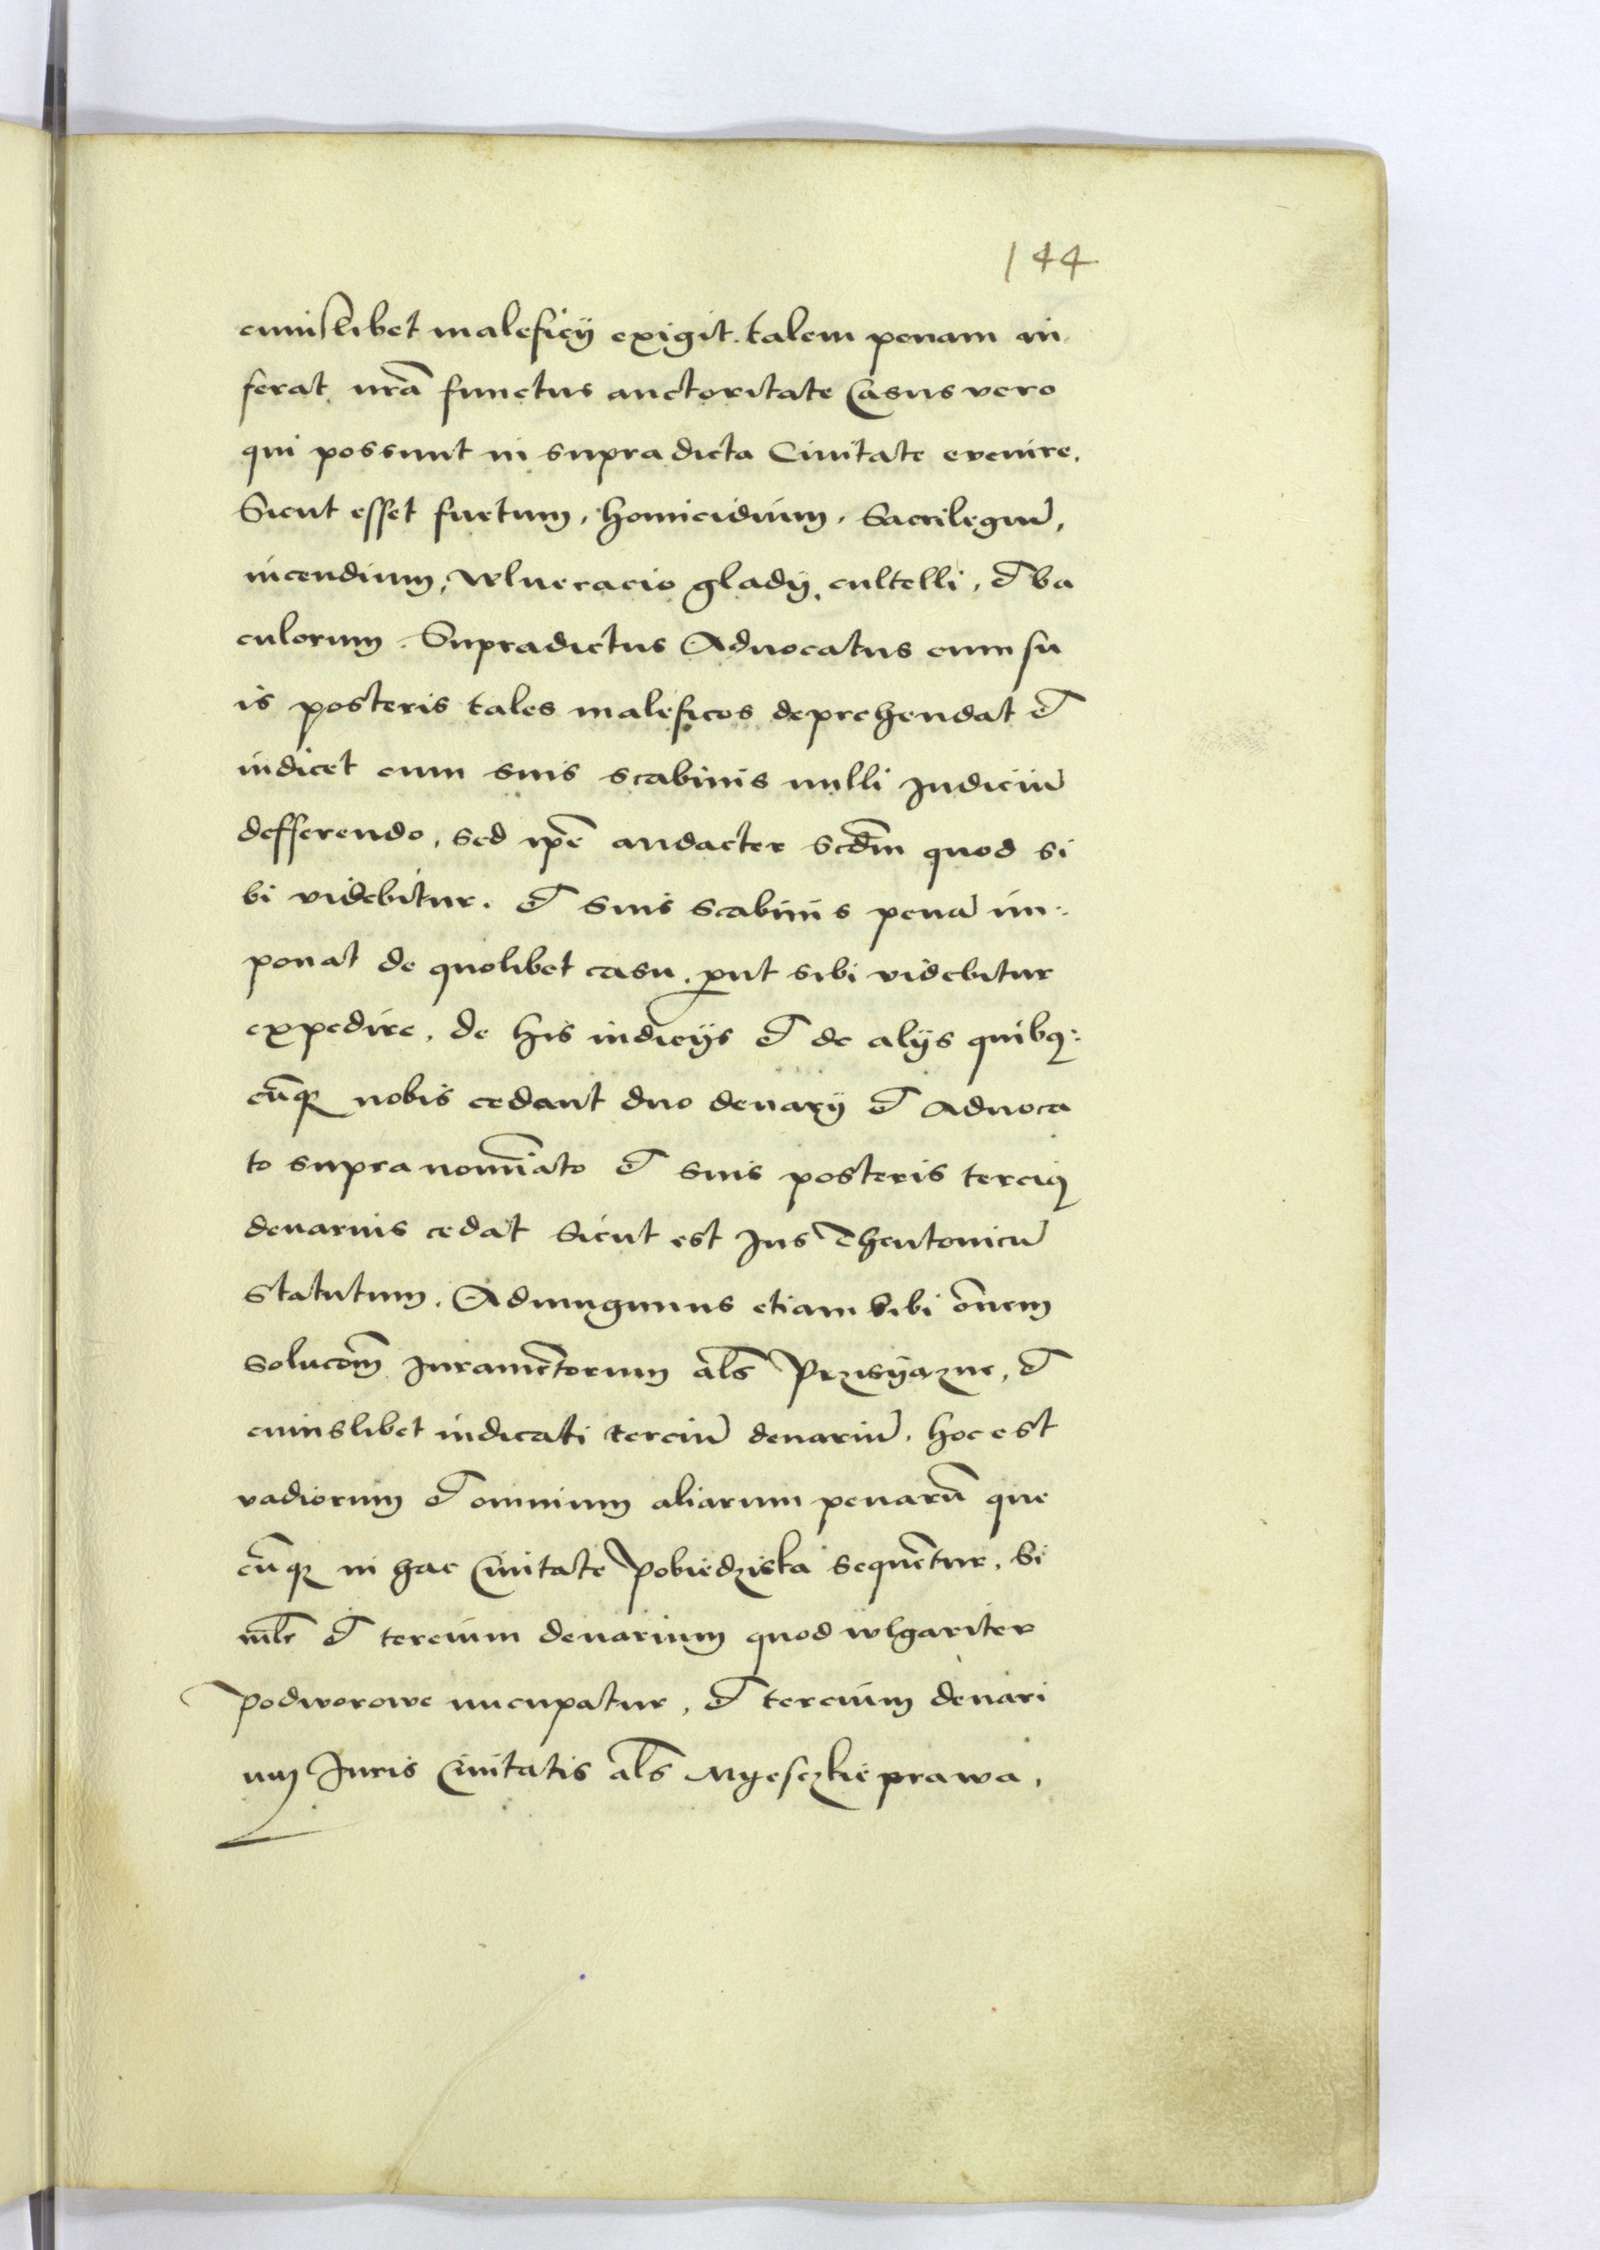 144
cuiuslibet maleficÿ exigit. talem penam in
ferat nrã functus auctoritate Casus vero
qui possunt in supradicta Ciuitate evenire.
Sicut esset furtum, homicidium. Sacrilegiũ,
incendium, wlneracio gladÿ, cultelli, et ba
culorum. Supradictus Aduocatus cum su
is posteris tales maleficos deprehendat et
iudicet cum suis scabinis nulli Judiciũ
defferendo, sed ip̃e audacter scd̃m quod si
bi videbitur. et suis scabinis penã im:
ponat de quolibet casu. ꝓut sibi videbitur
expedire. de his iudicÿs et de alÿs quibꝙ:
cũqꝫ nobis cedant duo denarÿ et aduoca
to supra nomĩato et suis posteris terciꝰ
denarius cedat Sicut est Jus Theutonicũ
Statutum. Adiungimus etiam sibi om̃em
solucõm Juramẽtorum al̃s Przisÿazne, et
cuiuslibet iudicati terciũ denariũ. hoc est
vadiorum et omnium aliarum penarũ que
cũqꝫ in hac Ciuitate Pobiedziska sequẽtur. Si
mĩlr et tercium denarium quod wlgariter
Podworowe nucupatur, et tercium denari
um Juris Ciuitatis al̃s Myesczkie prawa.